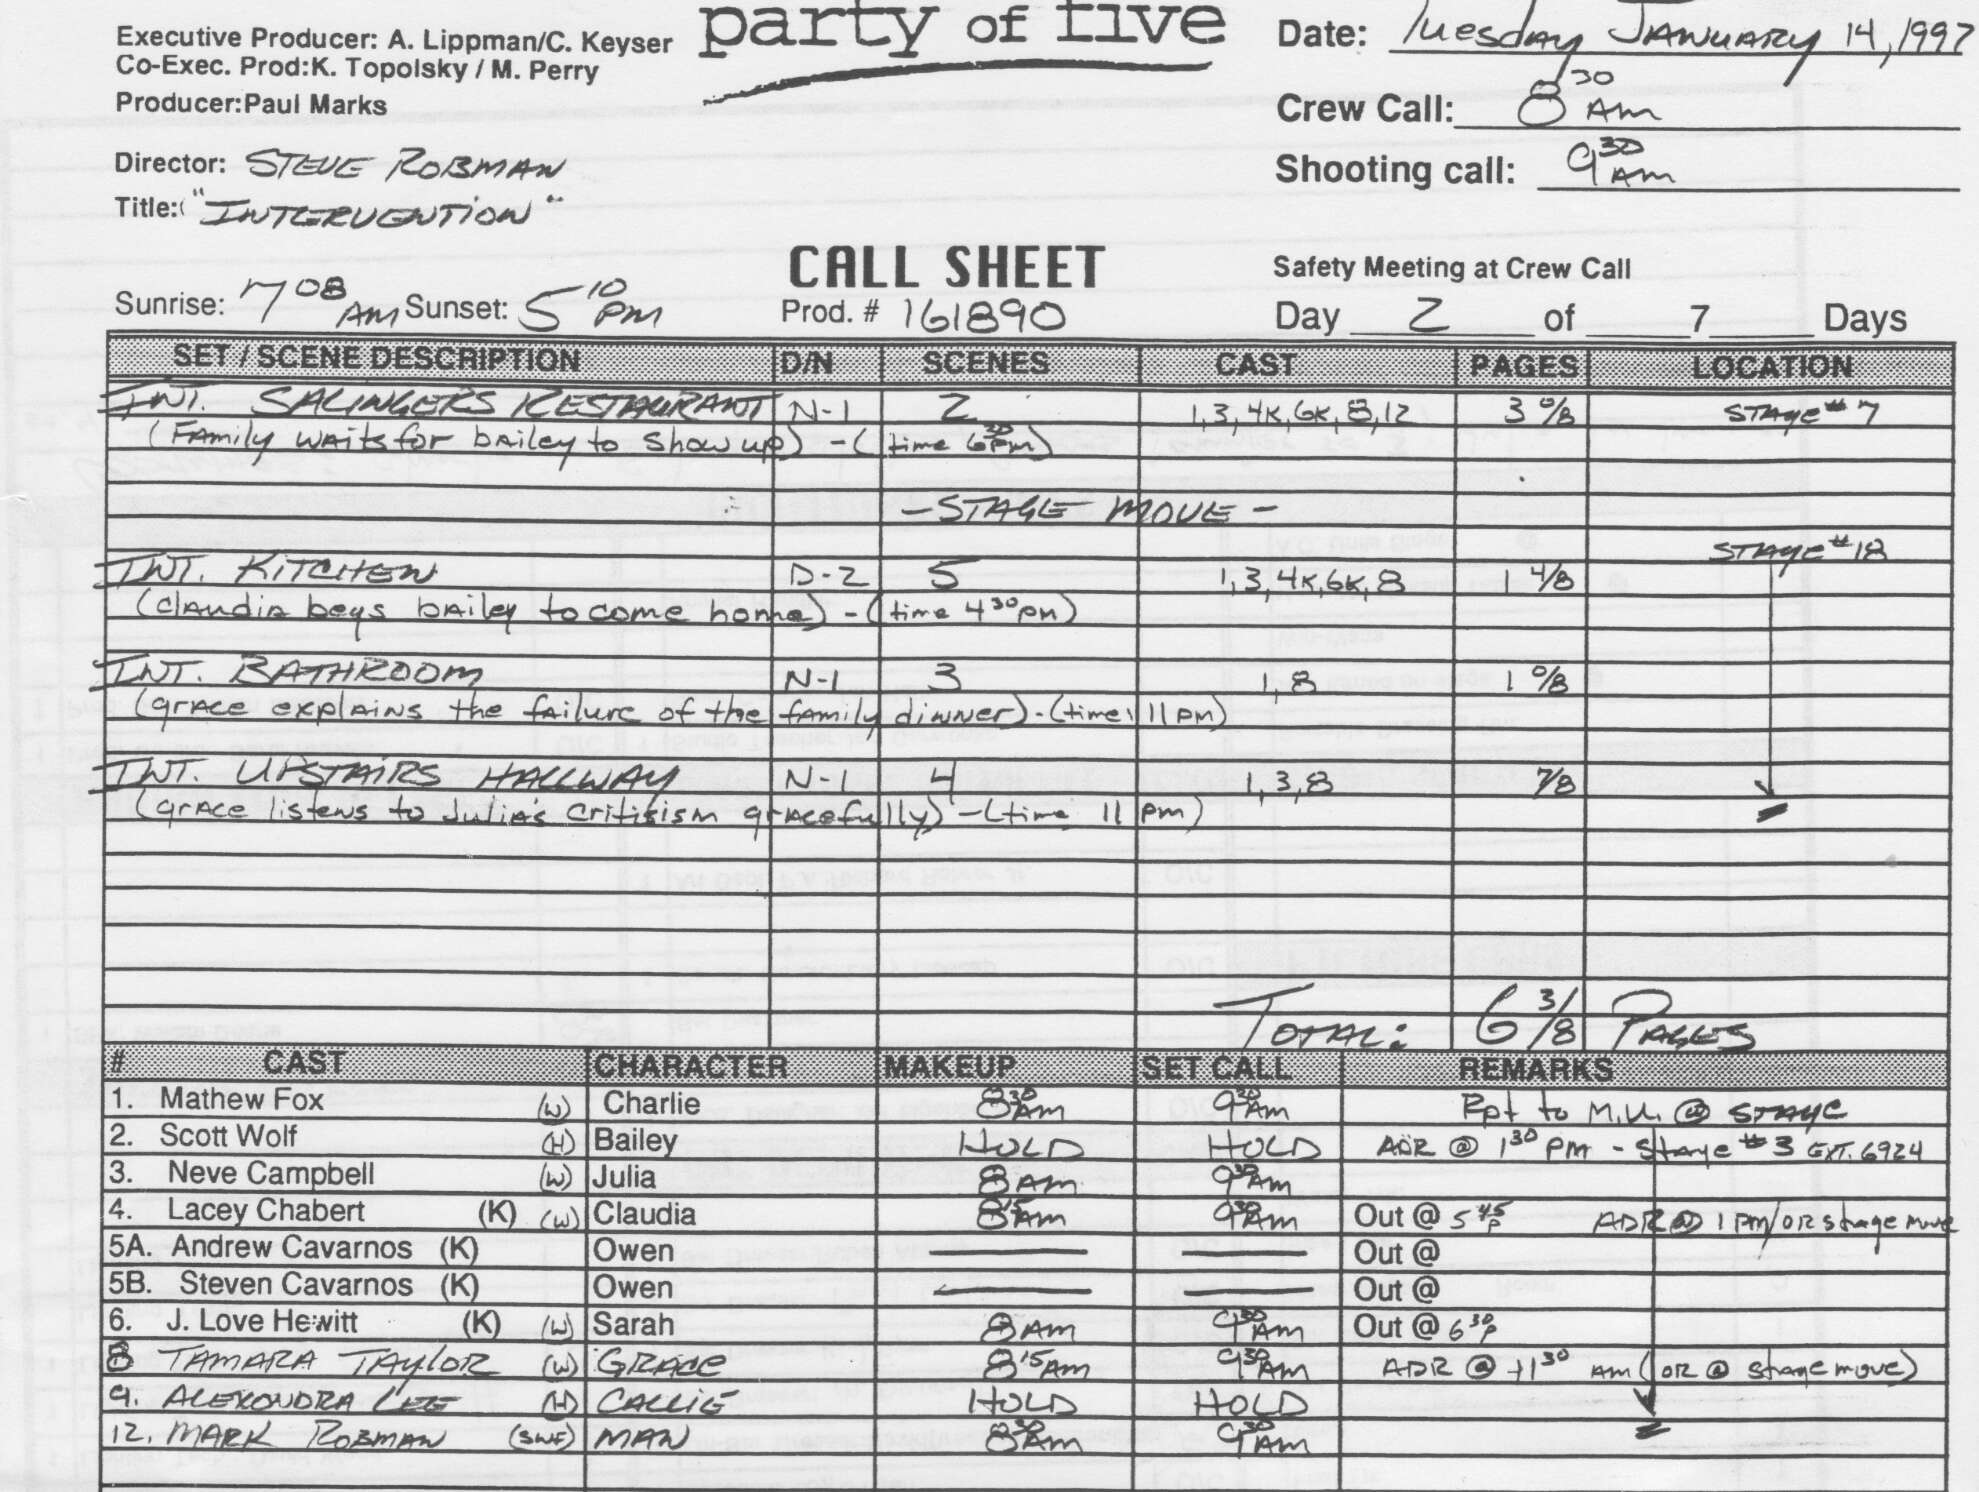 Executive Producer: A. Lippman/C. Keyser
Co-Exec. Prod:K. Topolsky / M. Perry
Producer:Paul Marks
party of five
Date: Tuesday JANUARY 14, 1997
Crew Call: 8 30 AM
Shooting call: 9 30 AM
Director: STEVE ROBMAN
Title: "INTERVENTION"
CALL SHEET
Safety Meeting at Crew Call
Sunrise: 7 08 AM Sunset: 5 10 PM
Prod. # 161890
Day 2 of 7 Days
SET / SCENE DESCRIPTION D/N SCENES CAST PAGES LOCATION
INT. SALINGERS RESTAURANT N-1 2 1,3,4K,6K,8,12 3 0/8 STAGE #7
(FAMILY WAITS for bailey to show up) - (time 6 30 pm)
- STAGE MOVE -
STAGE #18
INT. KITCHEN D-2 5 1,3,4K,6K,8 1 4/8
(Claudia begs bailey to come home) - (time 4 30 pm)
INT. BATHROOM N-1 3 1,8 1 0/8
(grace explains the failure of the family dinner) - (time: 11 pm)
INT. UPSTAIRS HALLWAY N-1 4 1,3,8 7/8
(grace listens to Julia's critisism gracefully) - (time 11 pm)
TOTAL: 6 3/8 PAGES
# CAST CHARACTER MAKEUP SET CALL REMARKS
1. Mathew Fox (W) Charlie 8 30 AM 9 30 AM Rpt to M.U. @ STAGE
2. Scott Wolf (H) Bailey HOLD HOLD ADR @ 1 30 PM - Stage #3 EXT. 6924
3. Neve Campbell (W) Julia 8 AM 9 30 AM
4. Lacey Chabert (K) (W) Claudia 8 15 AM 9 30 AM Out @ 5 45 P ADR @ 1 PM/OR stage move
5A. Andrew Cavarnos (K) Owen Out @
5B. Steven Cavarnos (K) Owen Out @
6. J. Love Hewitt (K) (W) Sarah 8 AM 9 30 AM Out @ 6 30 P
8 TAMARA TAYLOR (W) GRACE 8 15 AM 9 30 AM ADR @ 11 30 AM (OR @ stage move)
9. ALEXONDRA LEE (H) CALLIE HOLD HOLD
12. MARK ROBMAN (SWF) MAN 8 30 AM 9 30 AM